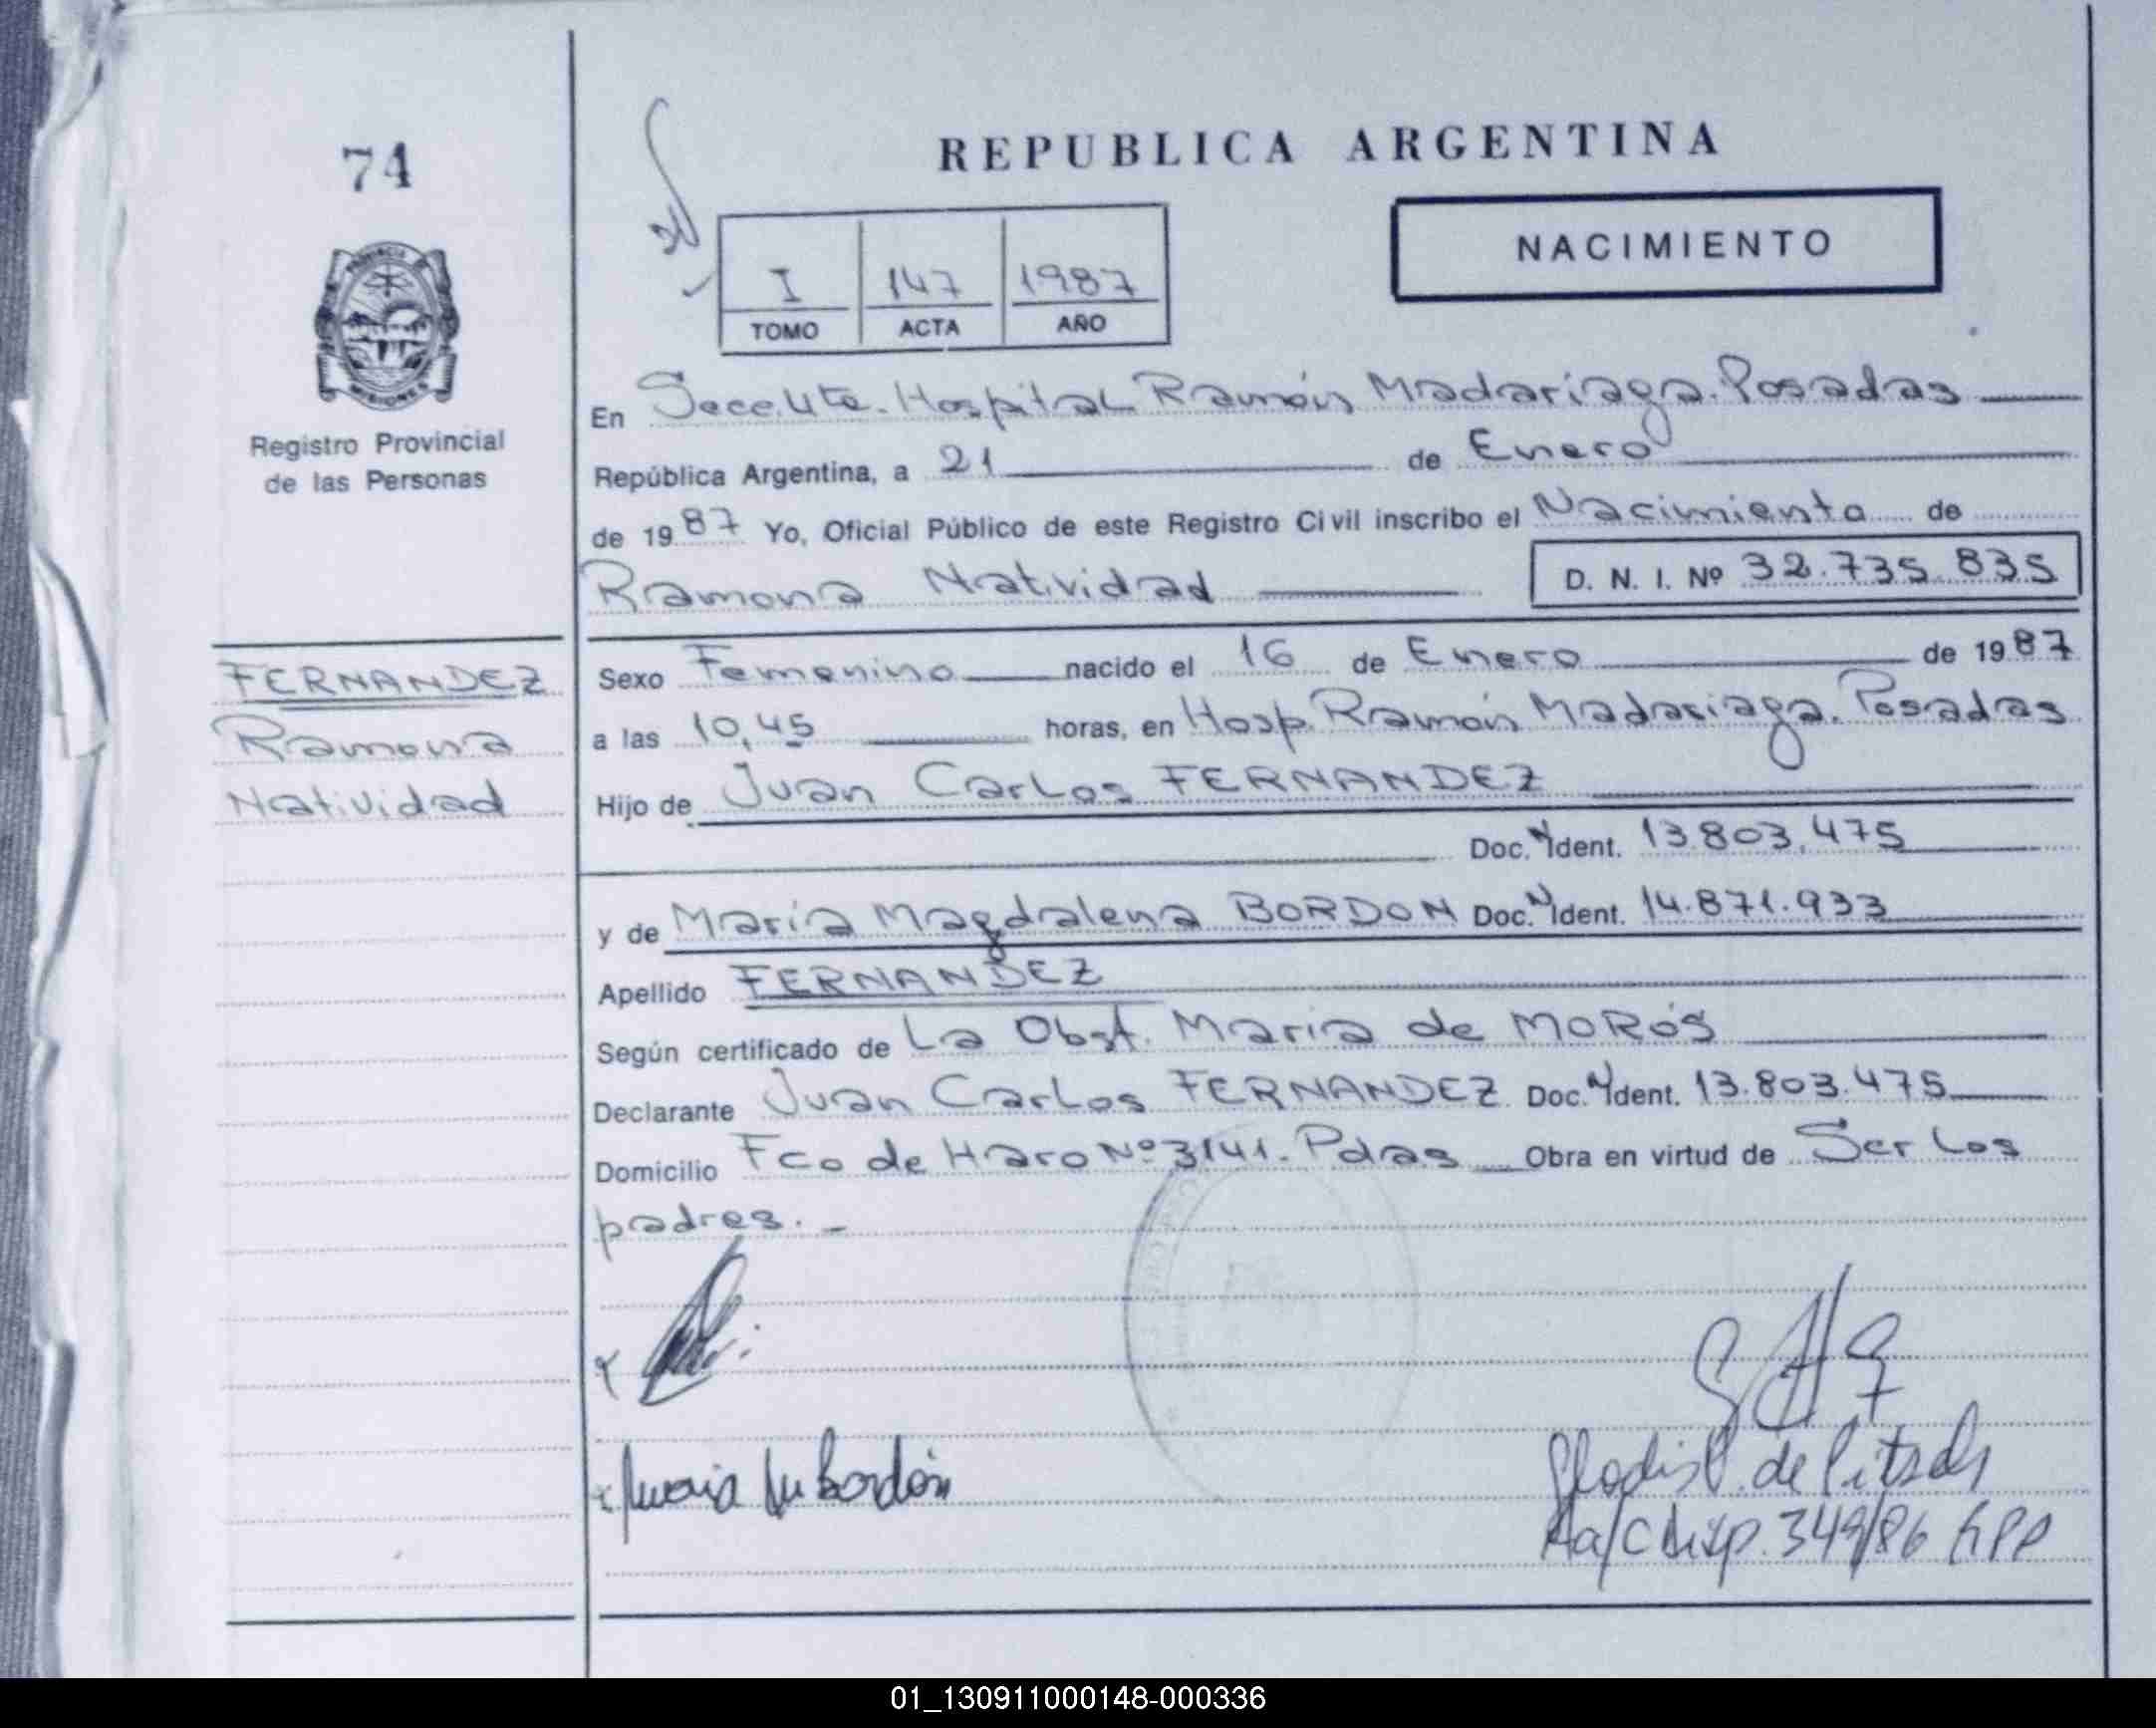 74
REPUBLICA ARGENTINA
NACIMIENTO
I 147 1987
TOMO ACTA AÑO
PROVINCIA
MISIONES
Registro Provincial
de las Personas
En Secc. 4ta. Hospital Ramón Madariaga. Posadas
República Argentina, a 21 de Enero
de 1987 Yo, Oficial Público de este Registro Civil inscribo el Nacimiento de
Ramona Natividad D. N. I. Nº 32.735.835
FERNANDEZ
Ramona
Natividad
Sexo Femenino nacido el 16 de Enero de 1987
a las 10,45 horas, en Hosp. Ramón Madariaga. Posadas
Hijo de Juan Carlos FERNANDEZ
Doc. N Ident. 13.803.475
y de María Magdalena BORDON Doc. N Ident. 14.871.933
Apellido FERNANDEZ
Según certificado de La Obst. Maria de MORós
Declarante Juan Carlos FERNANDEZ Doc. N Ident. 13.803.475
Domicilio Fco de Haro Nº 3141. Pdas Obra en virtud de Ser los
padres. -
Maria M Bordón
de
A/C Disp. 349/86 RPP
01_130911000148-000336